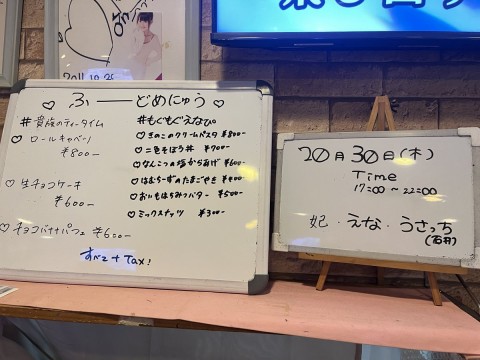 2011.10.26
♡ ふーどめにゅう ♡
#貴族のティータイム
♡ ロールキャベツ
¥800-
♡ 生チョコケーキ
¥600-
♡ チョコバナナパフェ ¥600-
#もぐもぐえなぴ。
♡ きのこのクリームパスタ ¥800-
♡ 二色そぼろ丼 ¥700-
♡ なんこつの塩からあげ ¥600-
♡ はむちーずのたまごやき ¥400-
♡ おいもはちみつバター ¥500-
♡ ミックスナッツ ¥300-
すべて+Tax!
20月30日(木)
Time
17:00~22:00
妃・えな・うさっち